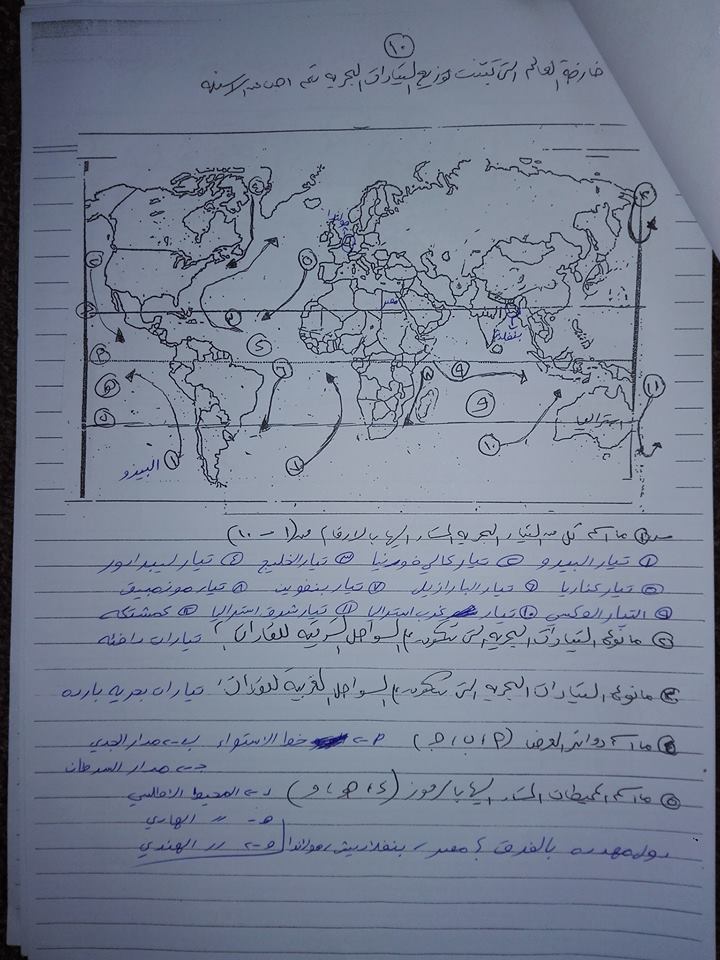 ١٠
خارطة العالم التي تبين توزيع التيارات البحرية ثم اجب عن الاسئلة
هولندا
مصر
الهند
بنغلادش
استراليا
البيرو
س١ ما اسم كل من التيارات البحرية المشار اليها بالارقام من (١ - ١٠)
١ تيار البيرو ٢ تيار كاليفورنيا ٣ تيار الخليج ٤ تيار لبرادور
٥ تيار كناريا ٦ تيار البرازيل ٧ تيار بنغويلا ٨ تيار موزمبيق
٩ التيار العكسي ١٠ تيار غرب استراليا ١١ تيار شرق استراليا ١٢ كمشتكه
٢ مانوع التيارات البحرية التي تتكون مع السواحل الشرقية للقارات؟ تيارات دافئه
٣ مانوع التيارات البحرية التي تتكون مع السواحل الغربية للقارات؟ تيارات بحريه بارده
٤ ما اسم دوائر العرض (أ، ب، ج) أ- خط الاستواء ب- مدار الجدي
ج- مدار السرطان
٥ ما اسم المحيطات المشار اليها بالرموز (د، هـ، و) د- المحيط الاطلسي
هـ- // الهادي
دول مهدده بالغرق؟ مصر، بنغلاديش، هولندا و- // الهندي